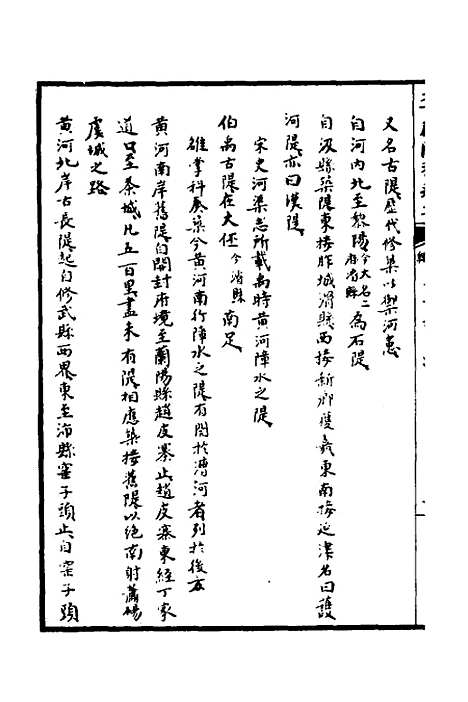 又名古隄歷代修築以禦河患
自河內北至黎陽今大名二府濬縣為石隄
自汲縣築隄東接胙城滑縣西接新鄉獲嘉東南接延津名曰護
河隄亦曰漢隄
宋史河渠志所載禹時黃河障水之隄
伯禹古隄在大伾今濬縣南足
雜掌科奏築今黃河南行障水之隄有関於漕河者列於後方
黃河南岸舊隄自開封府境至蘭陽縣趙皮寨止趙皮寨東經丁家
道口至秦城凡五百里盡未有隄相應築接舊隄以絕南射蕭碭
虞城之路
黃河北岸古長隄起自修武縣西界東至沛縣窑子頭止自窑子頭